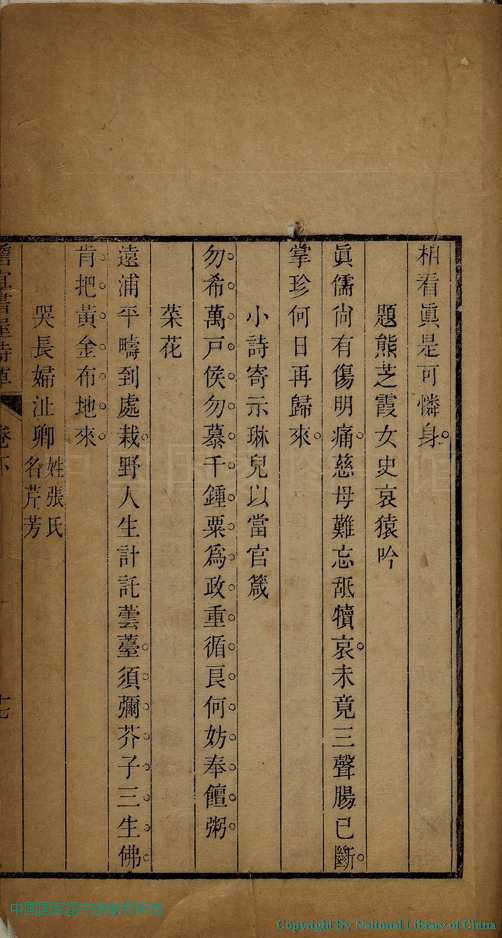 相看眞是可憐身
題熊芝霞女史哀猿吟
眞儒尙有傷明痛慈母難忘䑛犢哀未竟三聲腸已斷
掌珍何日再歸來
小詩寄示琳兒以當官箴
勿希萬戸侯勿慕千鍾粟爲政重循良何妨奉饘粥
菜花
遠浦平疇到處栽野人生計託蕓薹須彌芥子三生佛
肯把黃金布地來
哭長婦沚卿姓張氏名芹芳
書屋詩草 卷下
Copyright By National Library of China